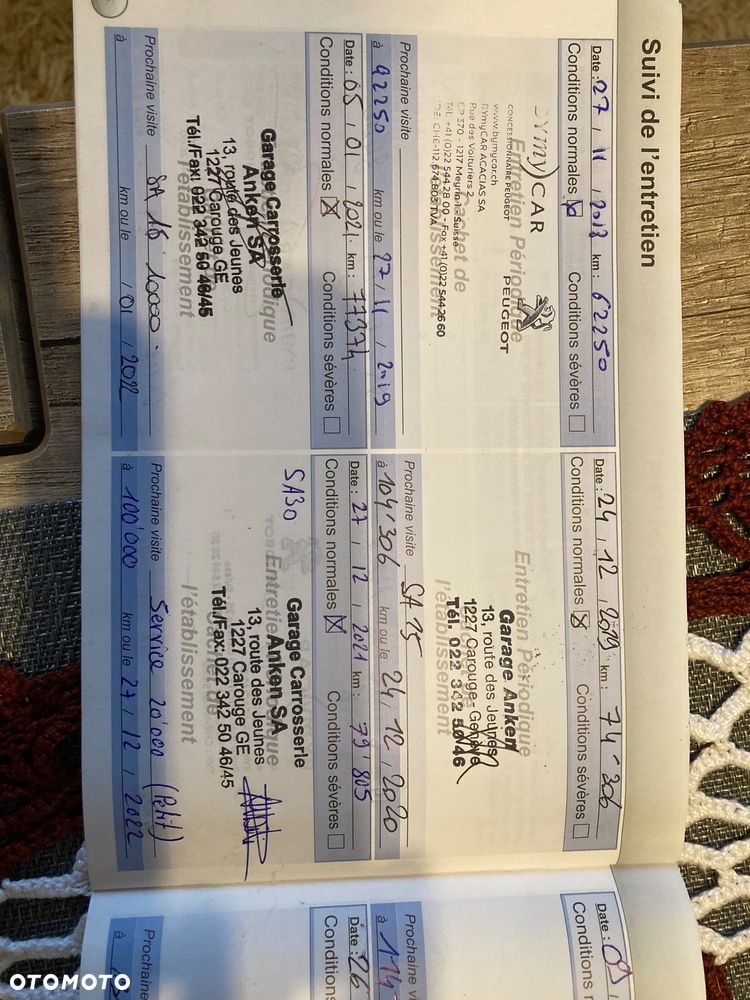 Suivi de l'entretien
Date : 27 / 11 / 2018 km : 62250
Conditions normales Conditions sévères
Entretien Périodique
BYmyCAR PEUGEOT
CONCESSIONNAIRE PEUGEOT
www.bymycar.ch
BYmyCAR ACACIAS SA
Rue des Voituriers 2
CP 370 - 1217 Meyrin 1 - Suisse
Tél. +41 (0)22 544 28 00 - Fax +41 (0)22 544 26 60
IDE: CHE-112.674.803 TVA
Cachet de
l'établissement
Prochaine visite
à 92250 km ou le 27 / 11 / 2019
Date : 24 / 12 / 2019 km : 74'306
Conditions normales Conditions sévères
Entretien Périodique
Garage Anken
13, route des Jeunes
1227 Carouge Genève
Tél. 022 342 50 46
l'établissement
Prochaine visite SA 15
à 104'306 km ou le 24 / 12 / 2020
Date : 05 / 01 / 2021 km : 77374
Conditions normales Conditions sévères
Garage Carrosserie
Anken SA
13, route des Jeunes
1227 Carouge GE
Tél./Fax: 022 342 50 46/45
l'établissement
Prochaine visite SA 15 10000.
à km ou le / 01 / 2022
Date : 27 / 12 / 2021 km : 79'805
Conditions normales Conditions sévères
SA30
Garage Carrosserie
Entretien Périodique
Anken SA
13, route des Jeunes
1227 Carouge GE
Cachet de
Tél./Fax: 022 342 50 46/45
l'établissement
Prochaine visite Service 20'000 (Petit)
à 100'000 km ou le 27 / 12 / 2022
Date : 09
Conditions n
Prochaine v
à 114
Date : 26
Conditions
Prochaine
à
OTOMOTO